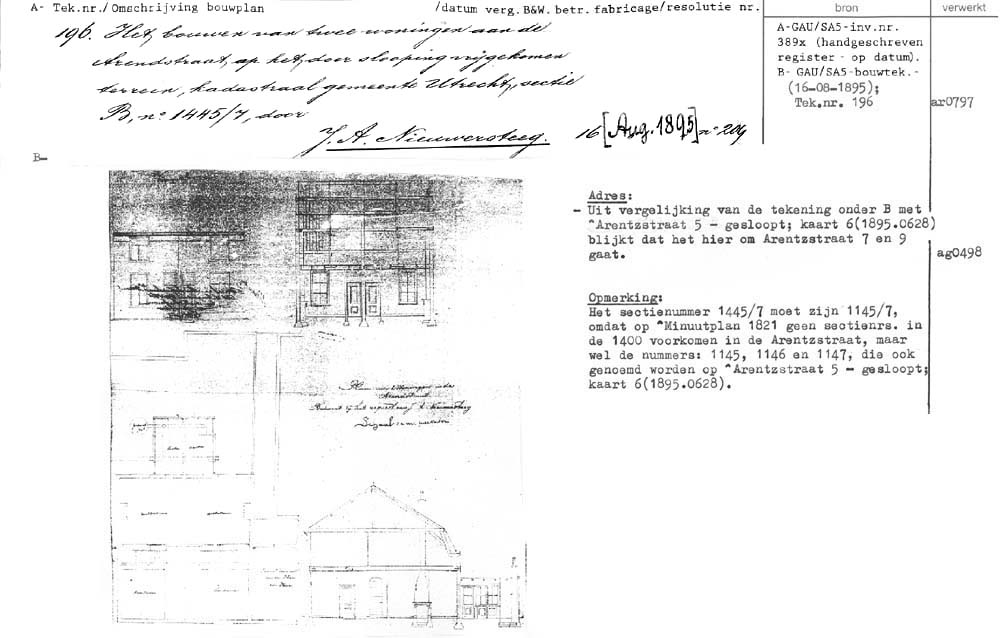 A- Tek.nr./Omschrijving bouwplan /datum verg.B&W. betr. fabricage/resolutie nr.
bron
verwerkt
196. Het bouwen van twee woningen aan de
Arendstraat, op het, door slooping vrijgekomen
terrein, kadastraal gemeente Utrecht, sectie
B, no 1445/7, door
J. A. Nieuwersteeg. 16 [Aug. 1895] no 204
A-GAU/SA5-inv.nr.
389x (handgeschreven
register - op datum).
B- GAU/SA5-bouwtek.-
(16-08-1895);
Tek.nr. 196
ar0797
B-
Adres:
- Uit vergelijking van de tekening onder B met
^Arentzstraat 5 - gesloopt; kaart 6(1895.0628)
blijkt dat het hier om Arentzstraat 7 en 9
gaat.
ag0498
Opmerking:
Het sectienummer 1445/7 moet zijn 1145/7,
omdat op ^Minuutplan 1821 geen sectienrs. in
de 1400 voorkomen in de Arentzstraat, maar
wel de nummers: 1145, 1146 en 1147, die ook
genoemd worden op ^Arentzstraat 5 - gesloopt;
kaart 6(1895.0628).
Arendstraat